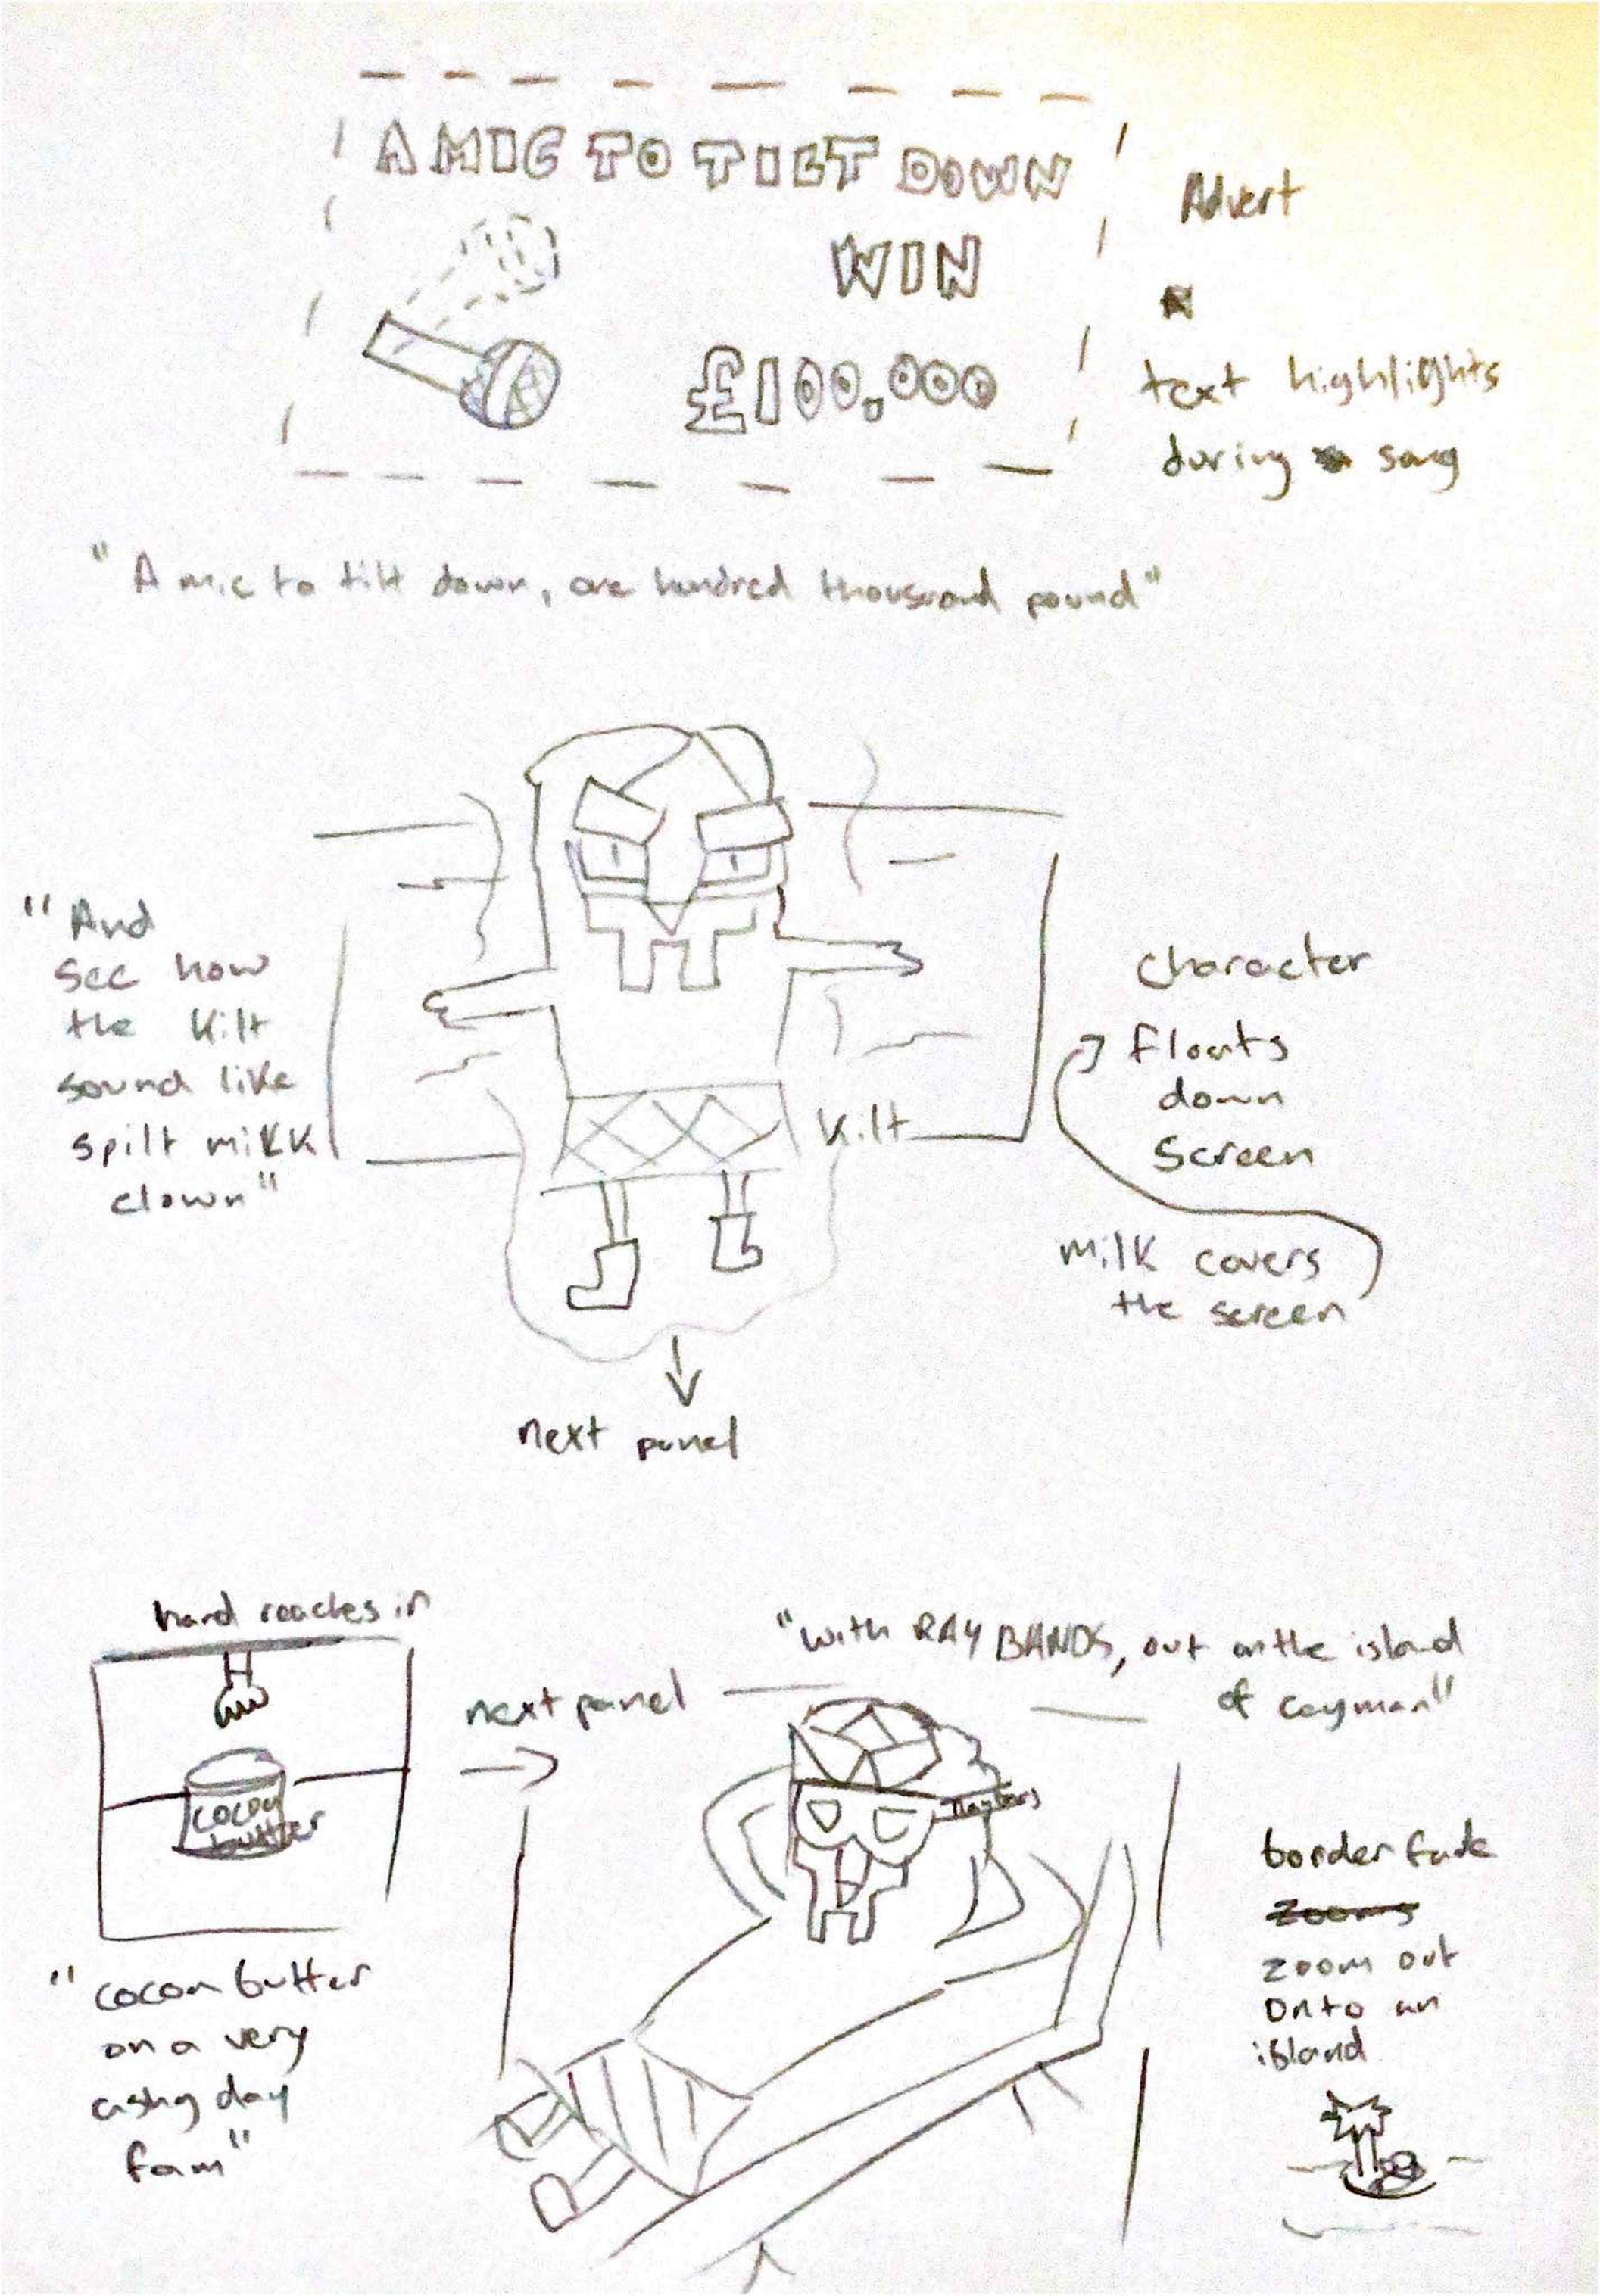 A MIC TO TILT DOWN
WIN
£100,000
Advert
text highlights
during song
"A mic to tilt down, one hundred thousand pound"
"And
see how
the kilt
sound like
spilt milk
clown"
kilt
character
floats
down
screen
milk covers
the screen
next panel
hand reaches in
cocoa
butter
"cocoa butter
on a very
ashy day
fam"
next panel
"with RAY BANDS, out on the island
of cayman"
border fade
zoom out
onto an
island